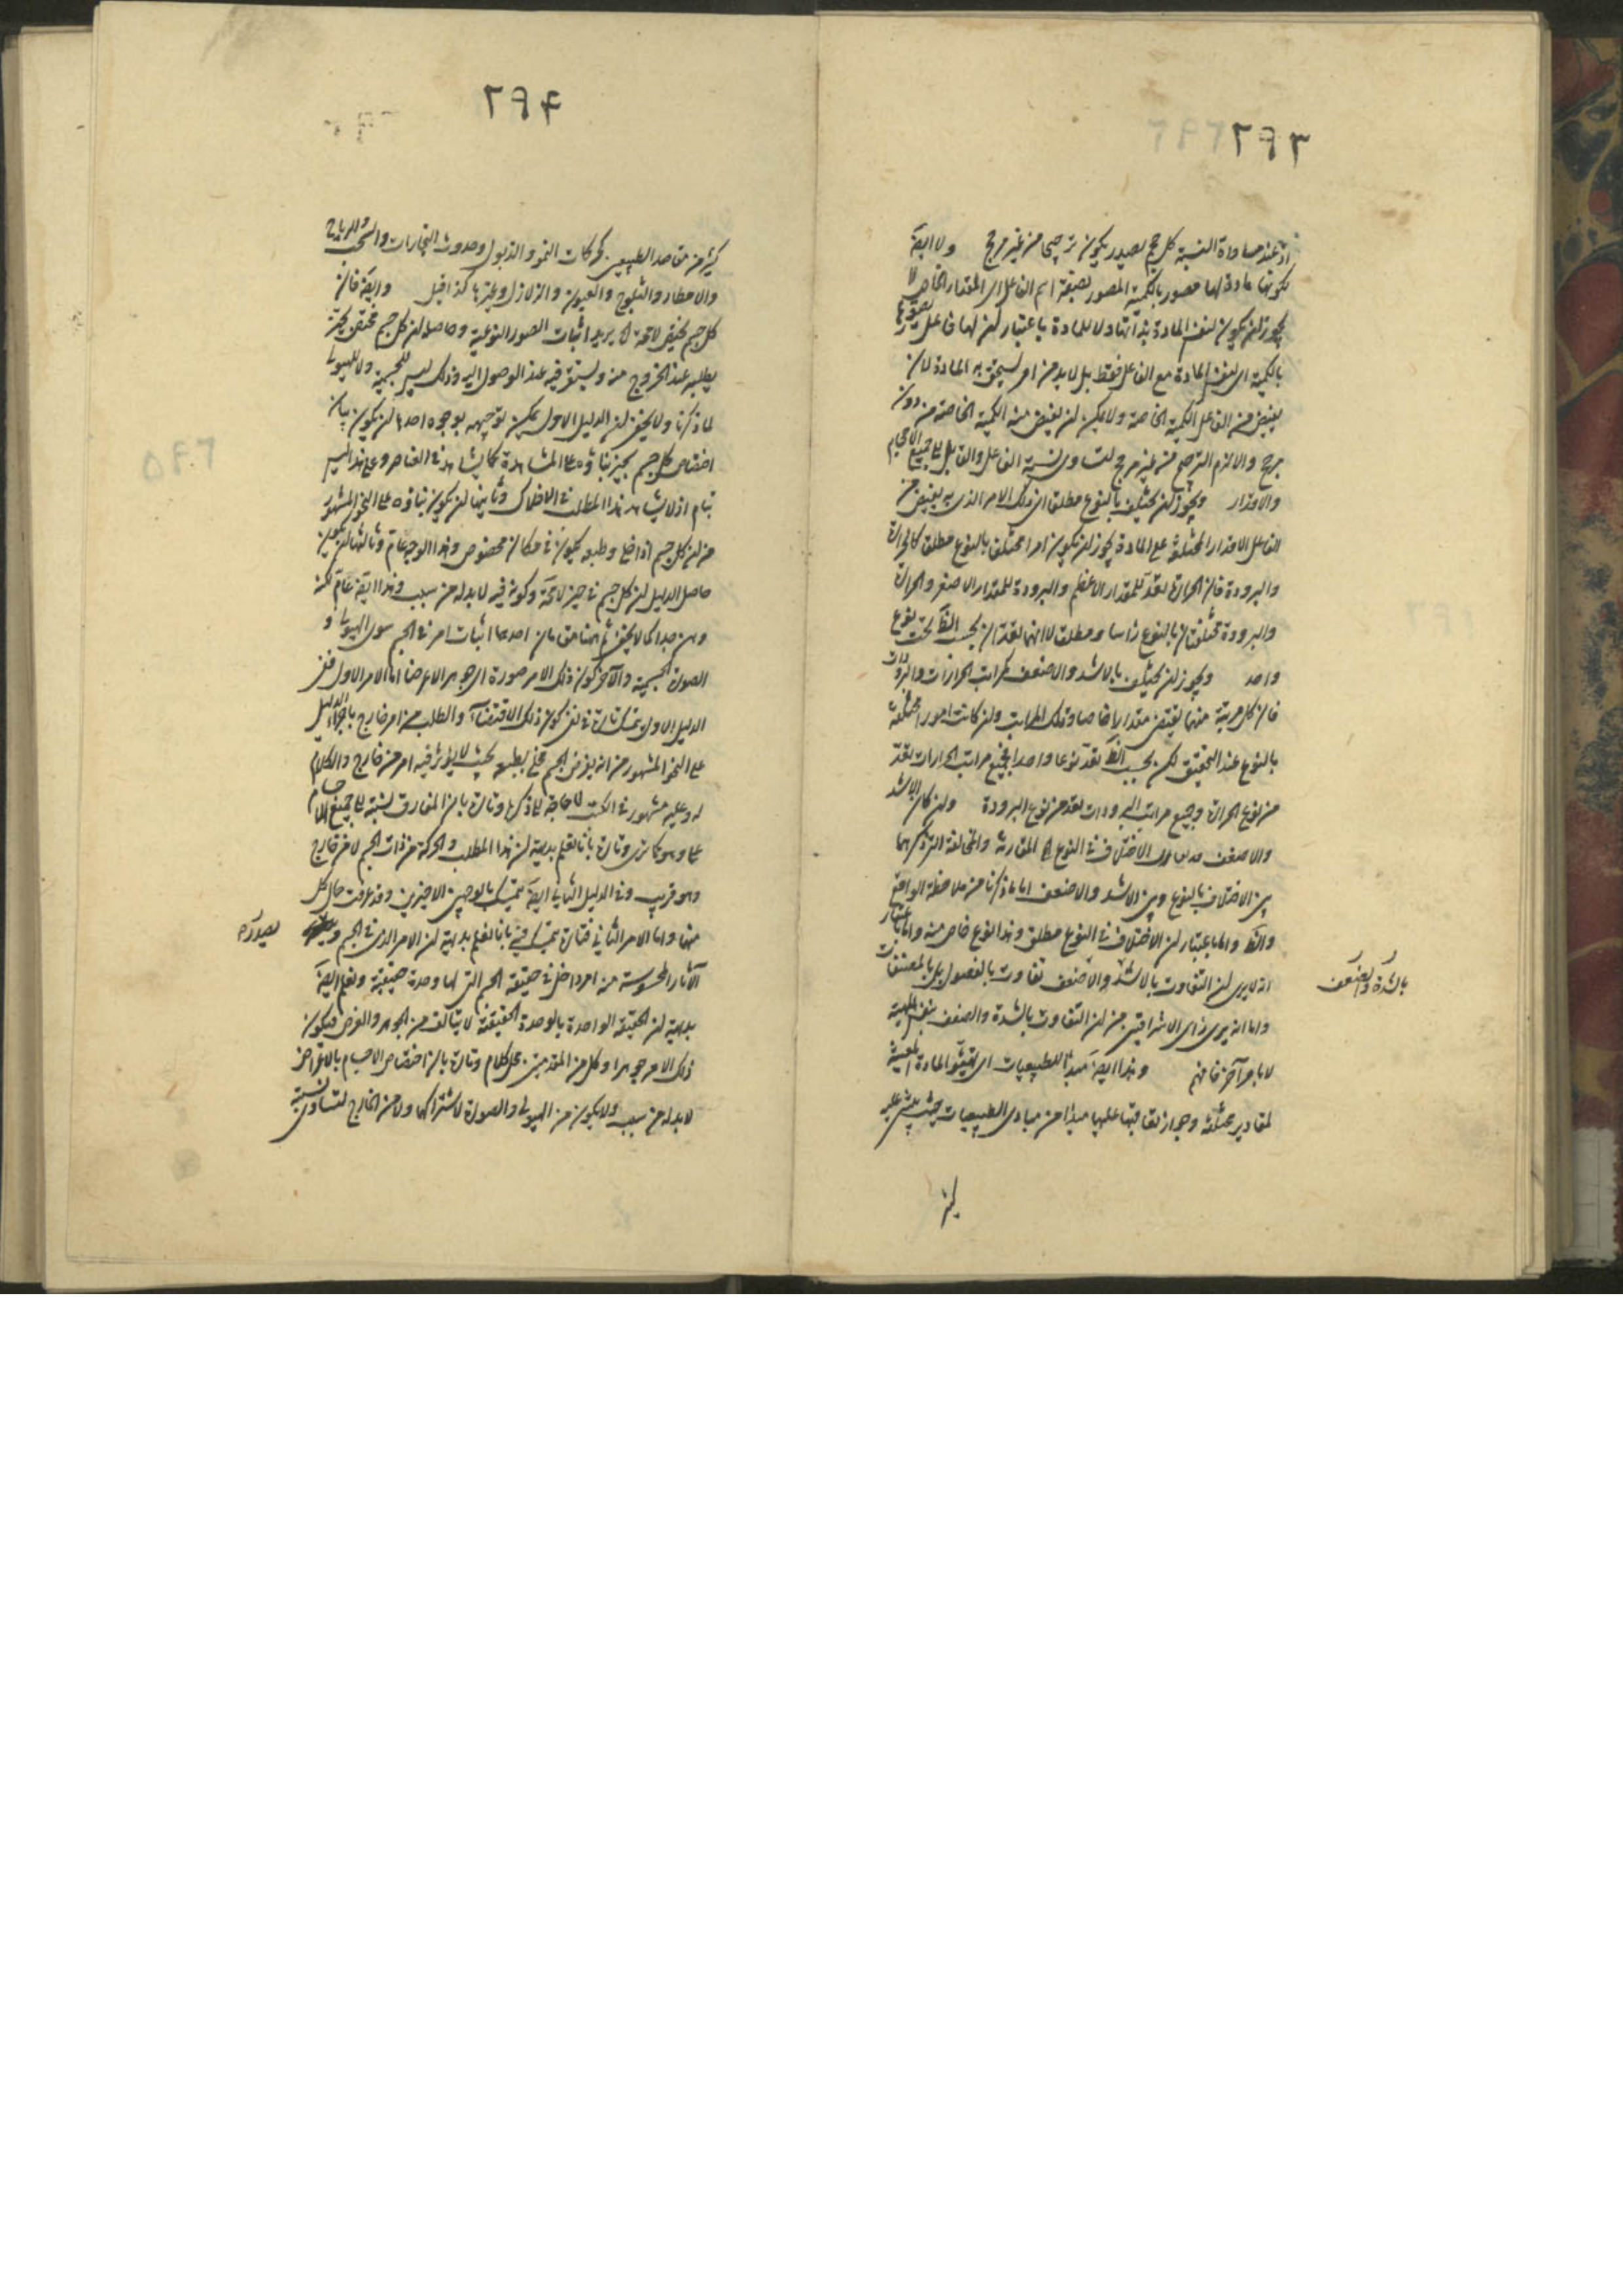 ٢٩٣
اذ عند مساواة النسبة كل حجم يصدر يكون ترجيحا من غير مرجح ولا ايضا
لكونها مادة لها مصور بالكمية المصور بصيغة اسم الفاعل اى المقدار الخاص لا
يجوز لن يكون لنفس المادة بذاتها ولا للمادة باعتبار لن لها فاعل يصورها
بالكمية اى لنفس المادة مع الفاعل فقط بل لا بد من امر يستحق به المادة لان
يفيض من الفاعل الكمية الخاصة ولا يمكن لن يفيض منه الكمية الخاصة من دون
مرجح والا لزم الترجيح من غير مرجح لتساوى نسبة الفاعل والقابل الى جميع الاحجام
والاقدار ويجوز لن يختلف بالنوع مطلقا اى ذلك الامر الذى به يفيض من
الفاعل الاقدار المختلفة على المادة يجوز لن يكون امرا مختلفا بالنوع مطلقا كالحرارة
والبرودة فان الحرارة تعد للمقدار الاعظم والبرودة للمقدار الاصغر والحرارة
والبرودة مختلفتان بالنوع راسا ومطلقا لا انهما تعدان بحسب الظ تحت نوع
واحد ويجوز لن يختلف بالاشد والاضعف كمراتب الحرارات والبرودات
فان كل مرتبة منهما يقتضى مقدارا خاصا وتلك المراتب ولن كانت امورا مختلفة
بالنوع عند التحقيق لكن بحسب الظ تعد نوعا واحدا فجميع مراتب الحرارات تعد
من نوع الحرارة وجميع مراتب البرودات تعد من نوع البرودة ولن كان الاشد
والاضعف الاختلاف فى النوع المقاربة والمخالفة التى ذكرهما
بين الاختلاف بالنوع وبين الاشد والاضعف اما ما ذكرنا من ملاحظة الواقع
والظ واما باعتبار لن الاختلاف فى النوع مطلق وهذا نوع خاص منه واما باعتبار
انه لا يرى لن التفاوت بالاشد والاضعف تفاوت بالفصول بل بالمصنفات
بالشدة والضعف
واما انه يرى راى الاشراقيين من لن التفاوت بالشدة والضعف بنفس المهية
لا بامر آخر فافهم وهذا ايضا مبدأ للطبيعيات اى تهيئو المادة المعينة
لمقادير مختلفة وجواز تعاقبها عليها مبدأ من مبادى الطبيعيات حيث يبتنى عليه
كثير
٢٩٤
كثير من مقاصد الطبيعيين كحركات النمو والذبول وحدوث البخارات والسحب والرياح
والامطار والثلوج والعيون والزلازل وغيرها كذا قيل وايضا فان
كل جسم يختص لا محة الخ يريد اثبات الصور النوعية وحاصله لن كل جسم مختص بحيز
يطلبه عند الخروج منه ويستقر فيه عند الوصول اليه وذلك ليس للجسمية ولا للهيولى
لما ذكرنا ولا يخفى لن الدليل الاول يمكن توجيهه بوجوه احدها لن يكون بيان
اختصاص كل جسم بحيز بناؤه على المشاهدة كما يشاهد فى العناصر وعلى هذا ليس
بتام اذ لا يشاهد هذا المطلب فى الافلاك وثانيها لن يكون بناؤه على النحو المشهور
من لن كل جسم اذا خلى وطبعه يكون فى مكان مخصوص وهذا الوجه عام وثالثها لن يكون
حاصل الدليل لن كل جسم فى حيز لا محة وكونه فيه لا بد له من سبب وهذا ايضا عام لكنه
وهن جدا كما لا يخفى ثم ههنا مقامان احدهما اثبات امر فى الجسم سوى الهيولى و
الصورة الجسمية والآخر كون ذلك الامر صورة اى جوهرا لا عرضا اما الامر الاول ففى
الدليل الاول يتمسك تارة فى نفى كون ذلك الاقتضاء والطلب من امر خارج باجراء الدليل
على النحو المشهور من انه يفرض الجسم مخلى بطبعه بحيث لا يؤثر فيه امر من خارج والكلام
له وعليه مشهور فى الكتب لا حاجة الى ذكره وتارة بان المفارق نسبته الى جميع الاجسام
على السواء وتارة بانا نعلم بديهة لن هذا المطلب والحركة من ذات الجسم لا من خارج
وهو قريب وفى الدليل الثانى ايضا يتمسك بالوجهين الاخيرين وقد عرفت حال كل
منها واما الامر الثانى فتارة يتمسك فيه بانا نعلم بديهة لن الامر الذى فى الجسم و
يصدر ه
الآثار المحسوسة منه امر داخل فى حقيقة الجسم التى لها وحدة حقيقية ونعلم ايضا
بديهة لن الحقيقة الواحدة بالوحدة الحقيقية لا يتالف من الجوهر والعرض فيكون
ذلك الامر جوهرا وكل من المقدمتين محل كلام وتارة بان اختصاص الاجسام بالاعراض
لا بد له من سبب ولا يكون من الهيولى والصورة لاشتراكهما ولا من الخارج لتساوى نسبته